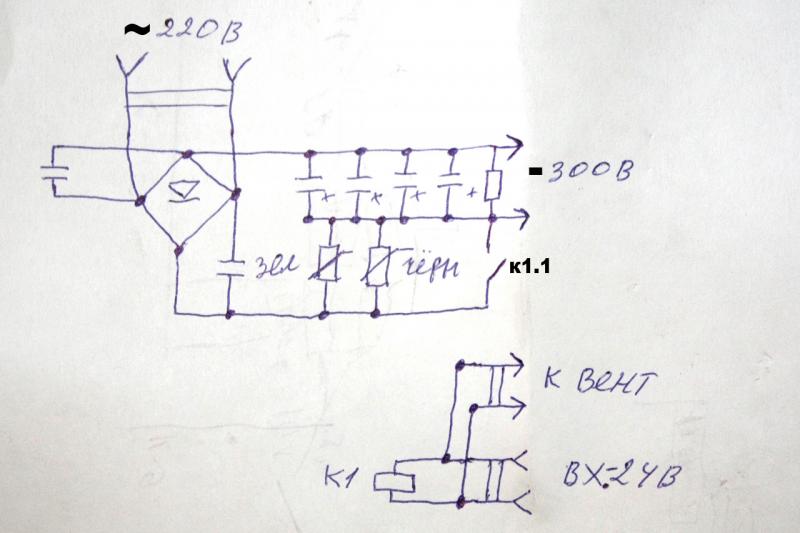 ~220В
-300В
зел
чёрн
к1.1
К ВЕНТ
К1
ВХ.=24В